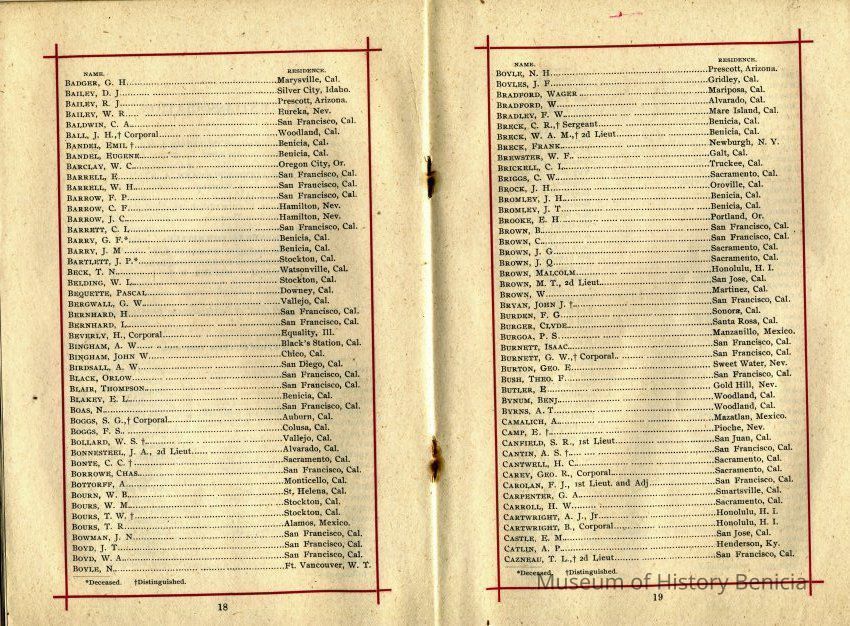 NAME. RESIDENCE.
BADGER, G. H. Marysville, Cal.
BAILEY, D. J. Silver City, Idaho.
BAILEY, R. J. Prescott, Arizona.
BAILEY, W. R. Eureka, Nev.
BALDWIN, C. A. San Francisco, Cal.
BALL, J. H.,† Corporal Woodland, Cal.
BANDEL, EMIL † Benicia, Cal.
BANDEL, EUGENE Benicia, Cal.
BARCLAY, W. C. Oregon City, Or.
BARRELL, E. San Francisco, Cal.
BARRELL, W. H. San Francisco, Cal.
BARROW, F. P. San Francisco, Cal.
BARROW, C. F. Hamilton, Nev.
BARROW, J. C. Hamilton, Nev.
BARRETT, C. L. San Francisco, Cal.
BARRY, G. F.* Benicia, Cal.
BARRY, J. M. Benicia, Cal.
BARTLETT, J. P.* Stockton, Cal.
BECK, T. N. Watsonville, Cal.
BELDING, W. L. Stockton, Cal.
BEQUETTE, PASCAL Downey, Cal.
BERGWALL, G. W. Vallejo, Cal.
BERNHARD, H. San Francisco, Cal.
BERNHARD, L. San Francisco, Cal.
BEVERLY, H., Corporal Equality, Ill.
BINGHAM, A. W. Black's Station, Cal.
BINGHAM, JOHN W. Chico, Cal.
BIRDSALL, A. W. San Diego, Cal.
BLACK, ORLOW San Francisco, Cal.
BLAIR, THOMPSON San Francisco, Cal.
BLAKEY, E. L. Benicia, Cal.
BOAS, N. San Francisco, Cal.
BOGGS, S. G.,† Corporal Auburn, Cal.
BOGGS, F. S. Colusa, Cal.
BOLLARD, W. S. † Vallejo, Cal.
BONNESTEEL, J. A., 2d Lieut. Alvarado, Cal.
BONTE, C. C. † Sacramento, Cal.
BORROWE, CHAS. San Francisco, Cal.
BOTTORFF, A. Monticello, Cal.
BOURN, W. B. St, Helena, Cal.
BOURS, W. M. Stockton, Cal.
BOURS, T. W. † Stockton, Cal.
BOURS, T. R. Alamos, Mexico.
BOWMAN, J. N. San Francisco, Cal.
BOYD, J. T. San Francisco, Cal.
BOYD, W. A. San Francisco, Cal.
BOYLE, N. Ft. Vancouver, W. T.
*Deceased. †Distinguished.
18
NAME. RESIDENCE.
BOYLE, N. H. Prescott, Arizona.
BOYLES, J. F. Gridley, Cal.
BRADFORD, WAGER Mariposa, Cal.
BRADFORD, W. Alvarado, Cal.
BRADLEY, F. W. Mare Island, Cal.
BRECK, C. R.,† Sergeant Benicia, Cal.
BRECK, W. A. M.,† 2d Lieut Benicia, Cal.
BRECK, FRANK Newburgh, N. Y.
BREWSTER, W. F. Galt, Cal.
BRICKELL, C. L. Truckee, Cal.
BRIGGS, C. W. Sacramento, Cal.
BROCK, J. H. Oroville, Cal.
BROMLEY, J. H. Benicia, Cal.
BROMLEY, J. T. Benicia, Cal.
BROOKE, E. H. Portland, Or.
BROWN, B. San Francisco, Cal.
BROWN, C. San Francisco, Cal.
BROWN, J. G. Sacramento, Cal.
BROWN, J. Q. Sacramento, Cal.
BROWN, MALCOLM Honolulu, H. I.
BROWN, M. T., 2d Lieut. San Jose, Cal.
BROWN, W. Martinez, Cal.
BRYAN, JOHN J. † San Francisco, Cal.
BURDEN, F. G. Sonora, Cal.
BURGER, CLYDE Santa Rosa, Cal.
BURGOA, P. S. Manzanillo, Mexico.
BURNETT, ISAAC San Francisco, Cal.
BURNETT, G. W.,† Corporal San Francisco, Cal.
BURTON, GEO. E. Sweet Water, Nev.
BUSH, THEO. F. San Francisco, Cal.
BUTLER, E. Gold Hill, Nev.
BYNUM, BENJ. Woodland, Cal.
BYRNS, A. T. Woodland, Cal.
CAMALICH, A. Mazatlan, Mexico.
CAMP, E. † Pioche, Nev.
CANFIELD, S. R., 1st Lieut San Juan, Cal.
CANTIN, A. S. † San Francisco, Cal.
CANTWELL, H. C. Sacramento, Cal.
CAREY, GEO. R., Corporal Sacramento, Cal.
CAROLAN, F. J., 1st Lieut. and Adj. San Francisco, Cal.
CARPENTER, G. A. Smartsville, Cal.
CARROLL, H. W. Sacramento, Cal.
CARTWRIGHT, A. J., Jr. Honolulu, H. I.
CARTWRIGHT, B., Corporal Honolulu, H. I.
CASTLE, E. M. San Jose, Cal.
CATLIN, A. P. Henderson, Ky.
CAZNEAU, T. L.,† 2d Lieut San Francisco, Cal.
*Deceased. †Distinguished.
19
Museum of History Benicia